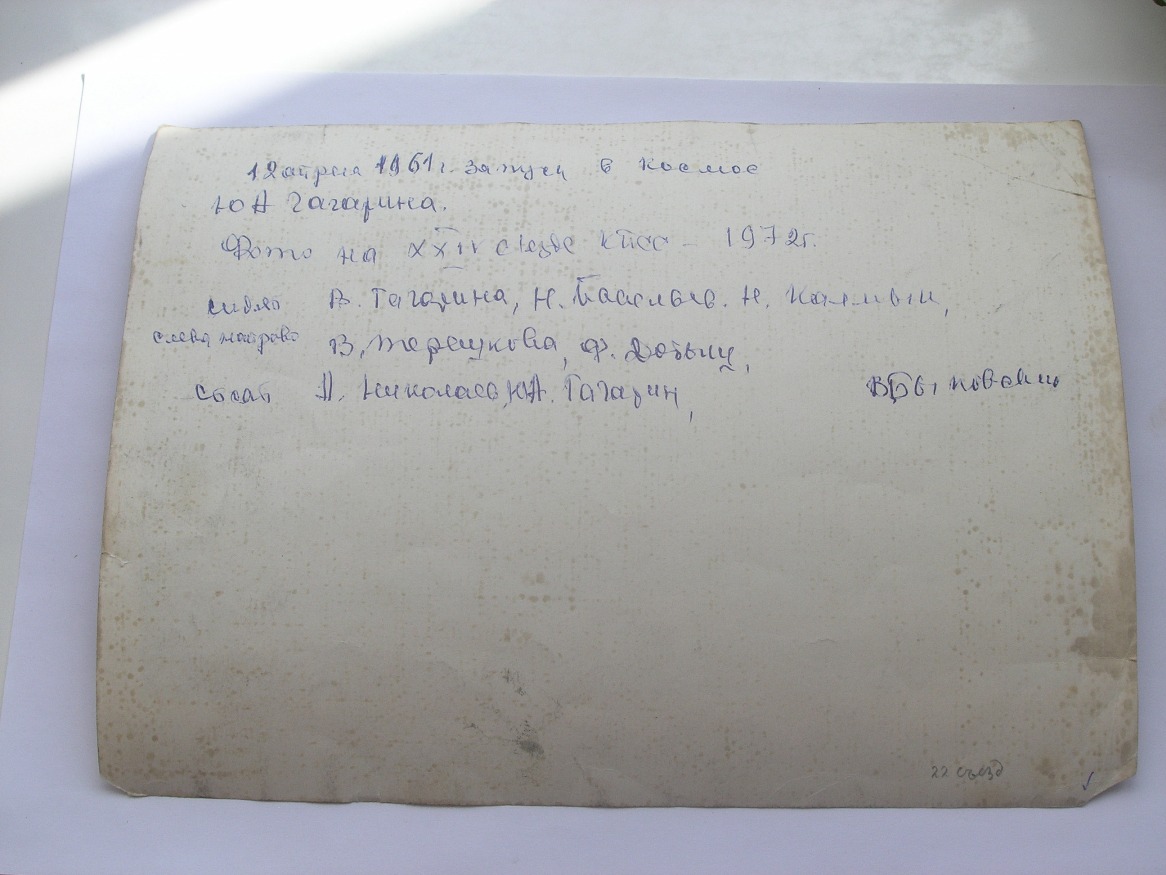 12 апреля 1961 г. запуск в космос
Ю А Гагарина.
Фото на XXIV сьезде КПСС – 1972г.
сидят В. Гагарина, Н. Н.
слева направо В. Терешкова, Ф.
стоят А. Николаев, Ю А. Гагарин, В Быковский
22 съезд